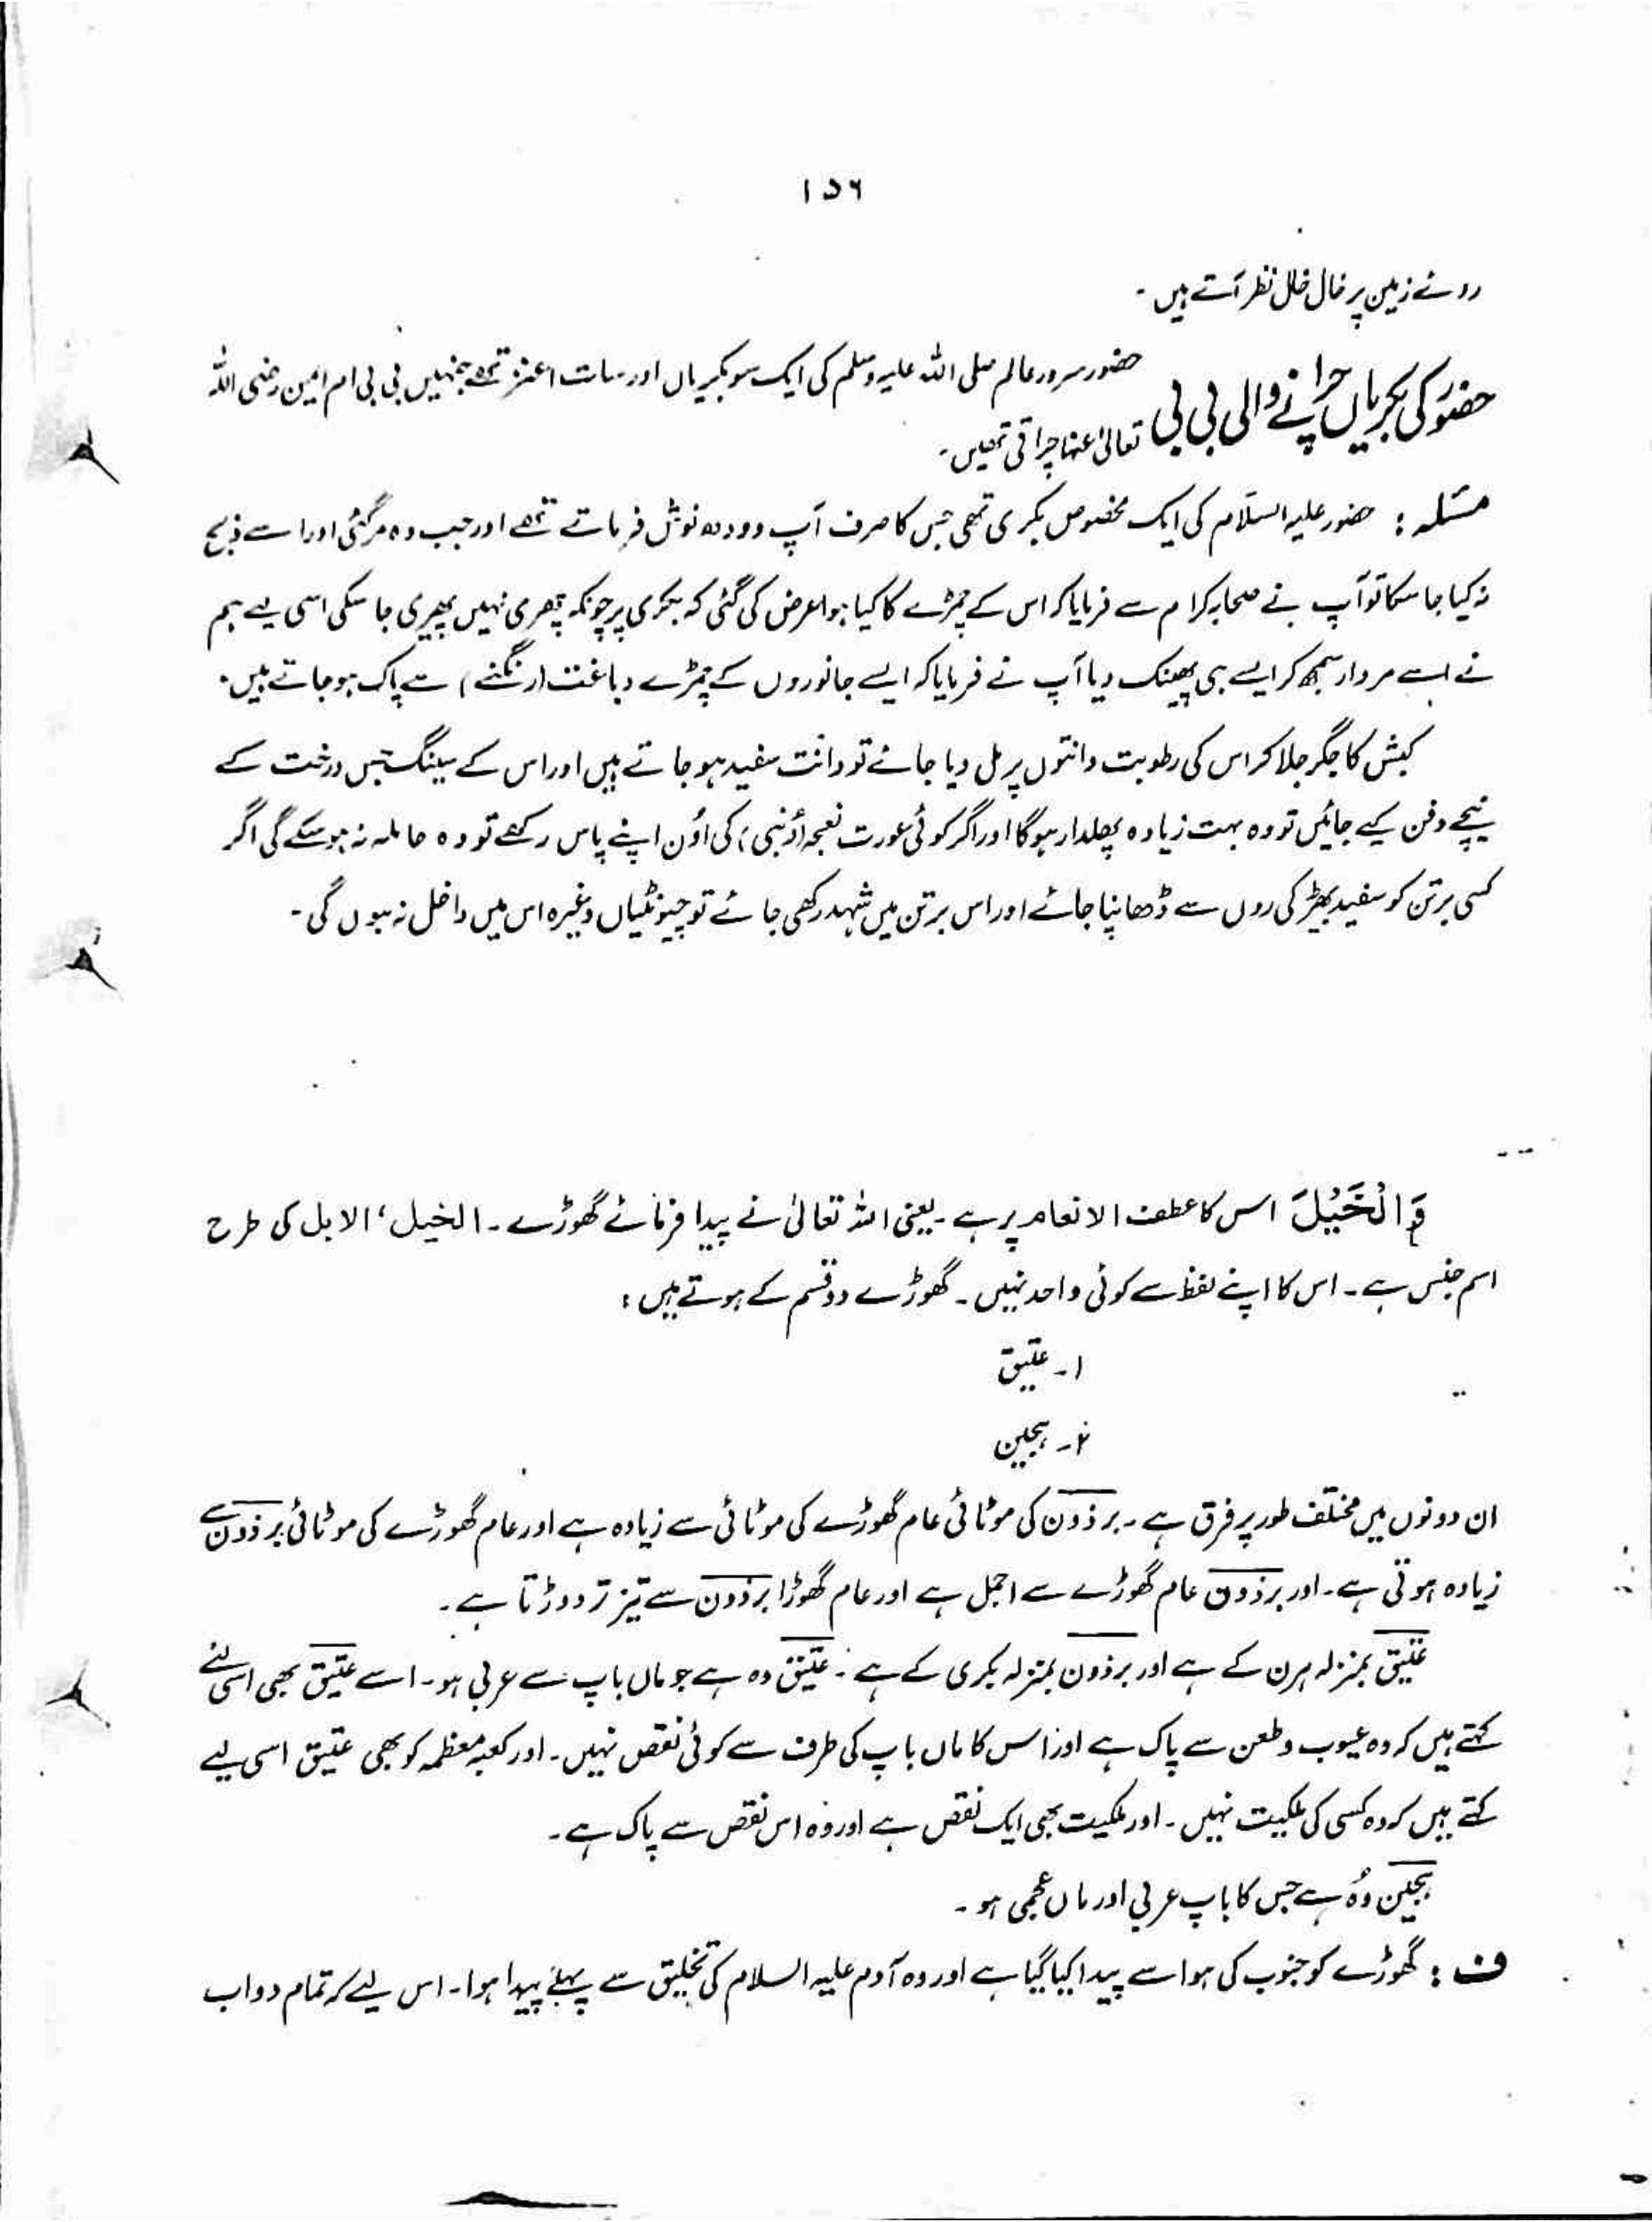 ۱۵۶
روئے زمین پر خال خال نظر آتے ہیں۔
حضور کی بکریاں چرانے والی بی بی
حضور سرور عالم صلی اللہ علیہ وسلم کی ایک سو بکریاں اور سات اعنز تھے جنہیں بی بی ام ایمن رضی اللہ
تعالیٰ عنہا چراتی تھیں۔
مسئلہ : حضور علیہ السلام کی ایک مخصوص بکری تھی جس کا صرف آپ دودھ نوش فرماتے تھے اور جب وہ مر گئی اور اسے ذبح
نہ کیا جا سکا تو آپ نے صحابہ کرام سے فرمایا کہ اس کے چمڑے کا کیا ہوا عرض کی گئی کہ بکری پر چونکہ چھری نہیں پھیری جا سکی اسی لیے ہم
نے اسے مردار سمجھ کر ایسے ہی پھینک دیا آپ نے فرمایا کہ ایسے جانوروں کے چمڑے دباغت (رنگنے) سے پاک ہو جاتے ہیں۔
کبش کا جگر جلا کر اس کی رطوبت دانتوں پر مل دیا جائے تو دانت سفید ہو جاتے ہیں اور اس کے سینگ جس درخت کے
نیچے دفن کیے جائیں تو وہ بہت زیادہ پھلدار ہوگا اور اگر کوئی عورت نعجہ (دُنبی) کی اُون اپنے پاس رکھے تو وہ حاملہ نہ ہو سکے گی اگر
کسی برتن کو سفید بھیڑ کی روں سے ڈھانپا جائے اور اس برتن میں شہد رکھی جائے تو چیونٹیاں وغیرہ اس میں داخل نہ ہوں گی۔
وَالْخَيْلَ اس کا عطف الانعام پر ہے۔ یعنی اللہ تعالیٰ نے پیدا فرمائے گھوڑے۔ الخیل، الابل کی طرح
اسم جنس ہے۔ اس کا اپنے لفظ سے کوئی واحد نہیں۔ گھوڑے دو قسم کے ہوتے ہیں :
۱۔ عتیق
۲۔ ہجین
ان دونوں میں مختلف طور پر فرق ہے۔ برذون کی موٹائی عام گھوڑے کی موٹائی سے زیادہ ہے اور عام گھوڑے کی موٹائی برذون سے
زیادہ ہوتی ہے۔ اور برذون عام گھوڑے سے اجمل ہے اور عام گھوڑا برذون سے تیز تر دوڑتا ہے۔
عتیق بمنزلہ ہرن کے ہے اور برذون بمنزلہ بکری کے ہے۔ عتیق وہ ہے جو ماں باپ سے عربی ہو۔ اسے عتیق بھی اسی لئے
کہتے ہیں کہ وہ عیوب و طعن سے پاک ہے اور اس کا ماں باپ کی طرف سے کوئی نقص نہیں۔ اور کعبہ معظمہ کو بھی عتیق اسی لیے
کہتے ہیں کہ وہ کسی کی ملکیت نہیں۔ اور ملکیت بھی ایک نقص ہے اور وہ اس نقص سے پاک ہے۔
ہجین وُہ ہے جس کا باپ عربی اور ماں عجمی ہو۔
ف : گھوڑے کو جنوب کی ہوا سے پیدا کیا گیا ہے اور وہ آدم علیہ السلام کی تخلیق سے پہلے پیدا ہوا۔ اس لیے کہ تمام دواب